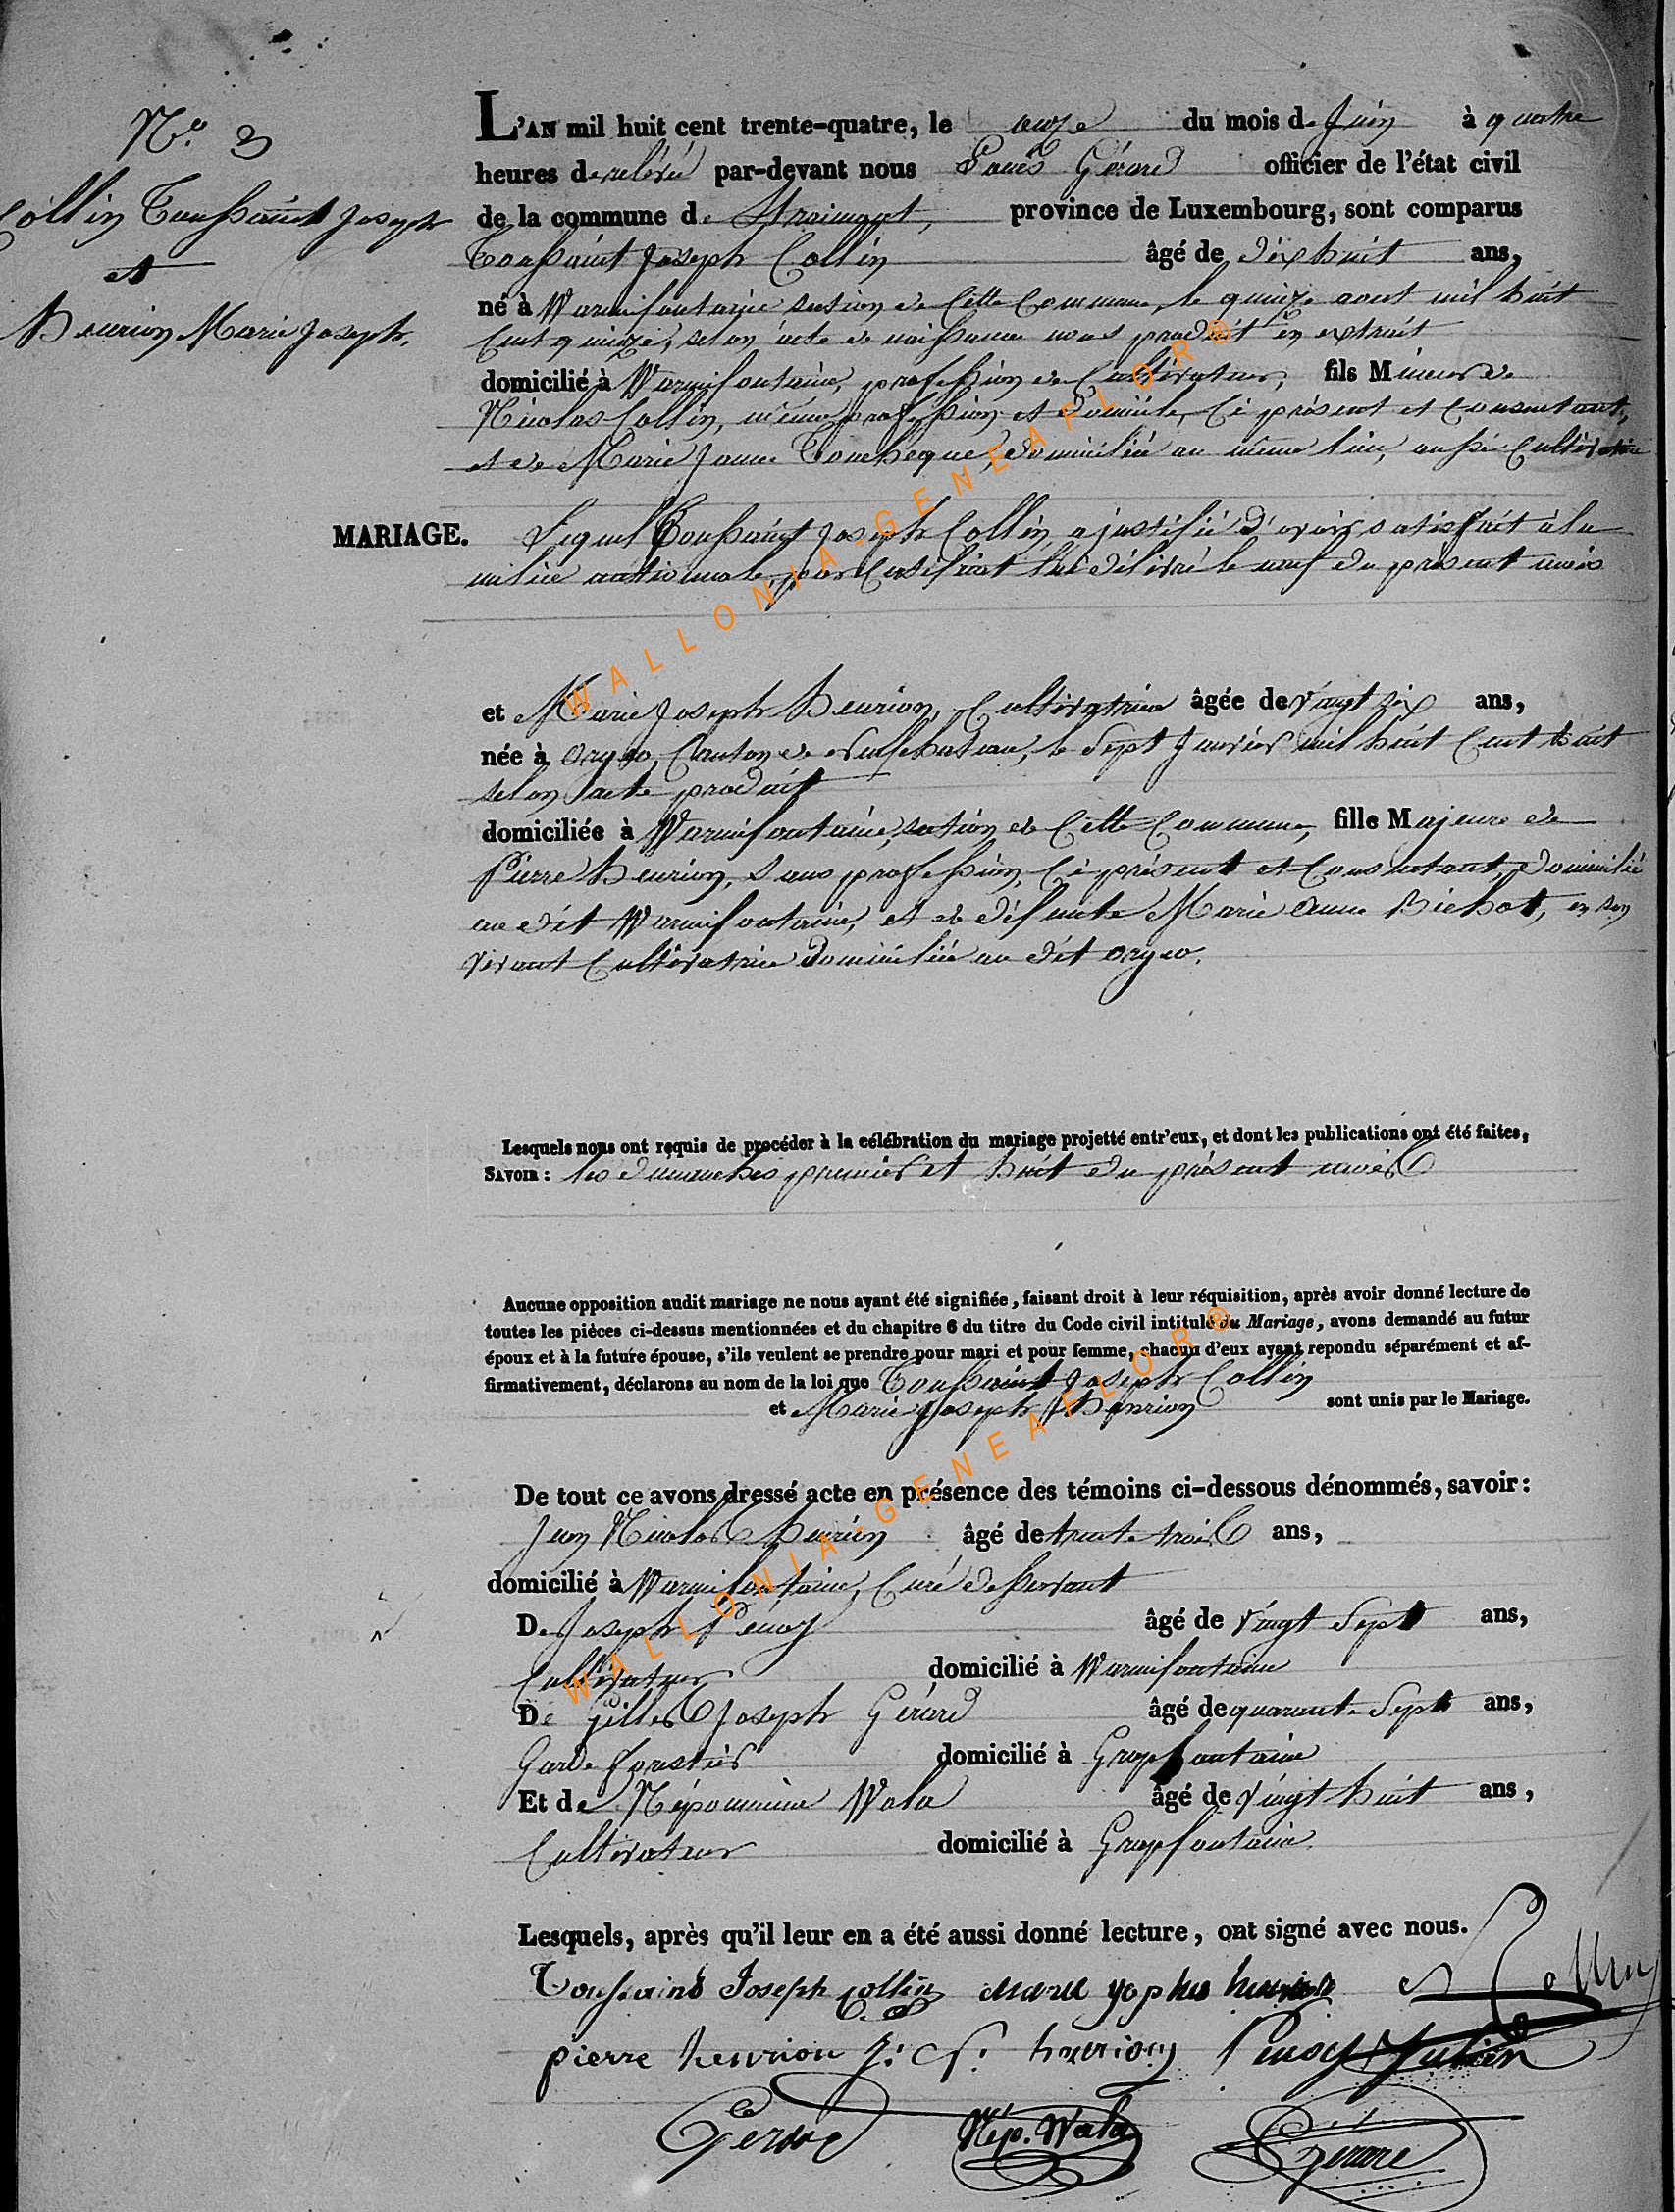 N.o 3
Collin Toussaint Joseph
et
Henrion Marie Joseph.
MARIAGE.
L'AN mil huit cent trente-quatre, le onze du mois de Juin à quatre
heures de relevée par-devant nous Gérard officier de l'état civil
de la commune de Straimont, province de Luxembourg, sont comparus
Toussaint Joseph Collin âgé de dix huit ans,
né à Warmifontaine section de Cette Commune, le quinze aout mil huit
Cent quinze, selon acte de naissance nous produit en extrait
domicilié à Warmifontaine, profession de Cultivateur, fils Mineur de
Nicolas Collin, même profession et domicile, Ci présent et Consentant,
et de Marie Jeanne domiciliée au même lieu, aussi Cultivatrice
Lequel Toussaint Joseph Collin, a justifié d'avoir satisfait à la
milice nationale, par Certificat lui délivré le neuf du présent mois
et Marie Joseph Henrion, Cultivatrice âgée de vingt six ans,
née à Orgeo, Canton de Neufchateau, le Sept Janvier mil huit Cent huit
selon acte produit
domiciliée à Warmifontaine, section de Cette Commune, fille Majeure de
Pierre Henrion, Sans profession, Ci présent et Consentant, domicilié
au dit Warmifontaine, et de défunte Marie Anne Bichot, en son
vivant Cultivatrice domiciliée au dit orgeo.
Lesquels nous ont requis de procéder à la célébration du mariage projetté entr'eux, et dont les publications ont été faites,
SAVOIR : les dimanches premier et huit du présent mois
Aucune opposition audit mariage ne nous ayant été signifiée, faisant droit à leur réquisition, après avoir donné lecture de
toutes les pièces ci-dessus mentionnées et du chapitre 6 du titre du Code civil intitulé du Mariage, avons demandé au futur
époux et à la future épouse, s'ils veulent se prendre pour mari et pour femme, chacun d'eux ayant repondu séparément et af-
firmativement, déclarons au nom de la loi que Toussaint Joseph Collin
et Marie Joseph Henrion sont unis par le Mariage.
De tout ce avons dressé acte en présence des témoins ci-dessous dénommés, savoir :
Jean Nicolas Henrion âgé de trente trois ans,
domicilié à Warmifontaine, Curé desservant
De Joseph Pénoy âgé de vingt Sept ans,
Cultivateur domicilié à Warmifontaine
De gilles Joseph Gérard âgé de quarante Sept ans,
Garde forestier domicilié à Grapfontaine
Et de Népomucène Wala âgé de vingt huit ans,
Cultivateur domicilié à Grapfontaine
Lesquels, après qu'il leur en a été aussi donné lecture, ont signé avec nous.
Toussaind Joseph collin henrion N Collin
pierre henrion J: N: henrion Penoy
Gerard Nép. Wala Gérard
WALLONIA-GENEAFLOR®
WALLONIA-GENEAFLOR®